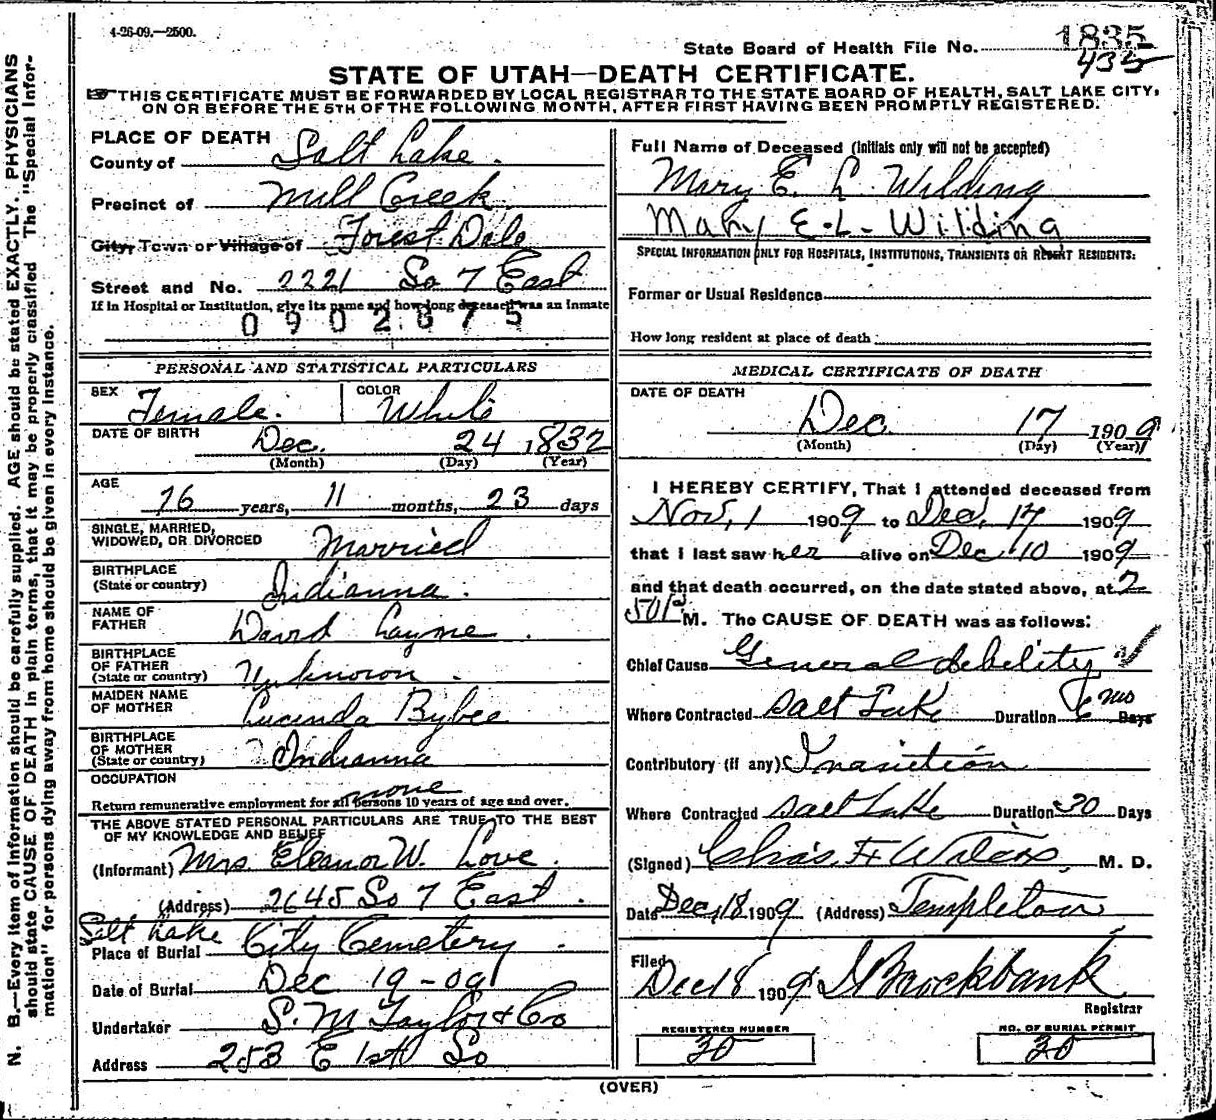 4-26-09.—2500.
State Board of Health File No. 1835
435
STATE OF UTAH—DEATH CERTIFICATE.
THIS CERTIFICATE MUST BE FORWARDED BY LOCAL REGISTRAR TO THE STATE BOARD OF HEALTH, SALT LAKE CITY,
ON OR BEFORE THE 5TH OF THE FOLLOWING MONTH, AFTER FIRST HAVING BEEN PROMPTLY REGISTERED.
N. B.—Every item of information should be carefully supplied. AGE should be stated EXACTLY. PHYSICIANS
should state CAUSE OF DEATH in plain terms, that it may be properly classified The "Special Infor-
mation" for persons dying away from home should be given in every instance.
PLACE OF DEATH
County of Salt Lake.
Precinct of Mill Creek
City, Town or Village of Forest Dale
Street and No. 2221 So 7 East
If in Hospital or Institution, give its name and how long deceased was an inmate
0902675
PERSONAL AND STATISTICAL PARTICULARS
SEX Female. COLOR White
DATE OF BIRTH Dec. 24, 1832
(Month) (Day) (Year)
AGE
76 years, 11 months, 23 days
SINGLE, MARRIED,
WIDOWED, OR DIVORCED Married
BIRTHPLACE
(State or country) Indianna.
NAME OF
FATHER David Layne.
BIRTHPLACE
OF FATHER
(State or country) Unknown.
MAIDEN NAME
OF MOTHER Lucinda Bybee
BIRTHPLACE
OF MOTHER
(State or country) Indianna
OCCUPATION none
Return remunerative employment for all persons 10 years of age and over.
THE ABOVE STATED PERSONAL PARTICULARS ARE TRUE TO THE BEST
OF MY KNOWLEDGE AND BELIEF
(Informant) Mrs. Eleanor W. Love.
(Address) 2645 So 7 East.
Salt Lake
Place of Burial City Cemetery.
Date of Burial Dec 19-09
Undertaker S. M Taylor & Co
Address 253 E 1st So
Full Name of Deceased (Initials only will not be accepted)
Mary E. L. Wilding
Mary E.L. Wilding
SPECIAL INFORMATION ONLY FOR HOSPITALS, INSTITUTIONS, TRANSIENTS OR RECENT RESIDENTS:
Former or Usual Residence
How long resident at place of death
MEDICAL CERTIFICATE OF DEATH
DATE OF DEATH
Dec. 17 1909
(Month) (Day) (Year)
I HEREBY CERTIFY, That I attended deceased from
Nov, 1 1909 to Dec, 17 1909
that I last saw her alive on Dec 10 1909
and that death occurred, on the date stated above, at 2
50 P M. The CAUSE OF DEATH was as follows:
Chief Cause General debility
Where Contracted Salt Lake Duration 6 mos Days
Contributory (if any) Inanition
Where Contracted Salt Lake Duration 30 Days
(Signed) Chas. F Wilcox, M. D.
Date Dec, 18, 1909 (Address) Templeton
Filed
Dec 18 1909 Brockbank
Registrar
REGISTERED NUMBER
30
NO. OF BURIAL PERMIT
30
(OVER)